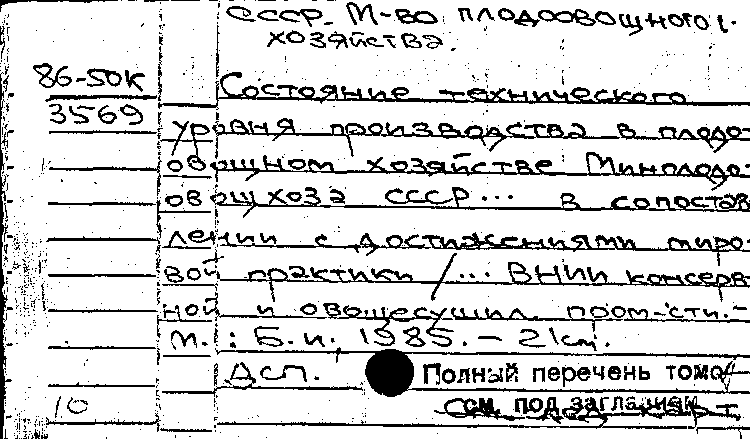 СССР. М-во плодоовощного
хозяйства.
86-50к
3569
Состояние технического
уровня производства в плодо-
овощном хозяйстве Минплодо-
овощхоза СССР... в сопостав
лении с достижениями миро-
вой практики /... ВНИИ консерв
ной и овощесушил. пром-сти.-
М.: Б.и., 1985. - 21см.
Дсп.
Полный перечень томов
см. под заглавием
10